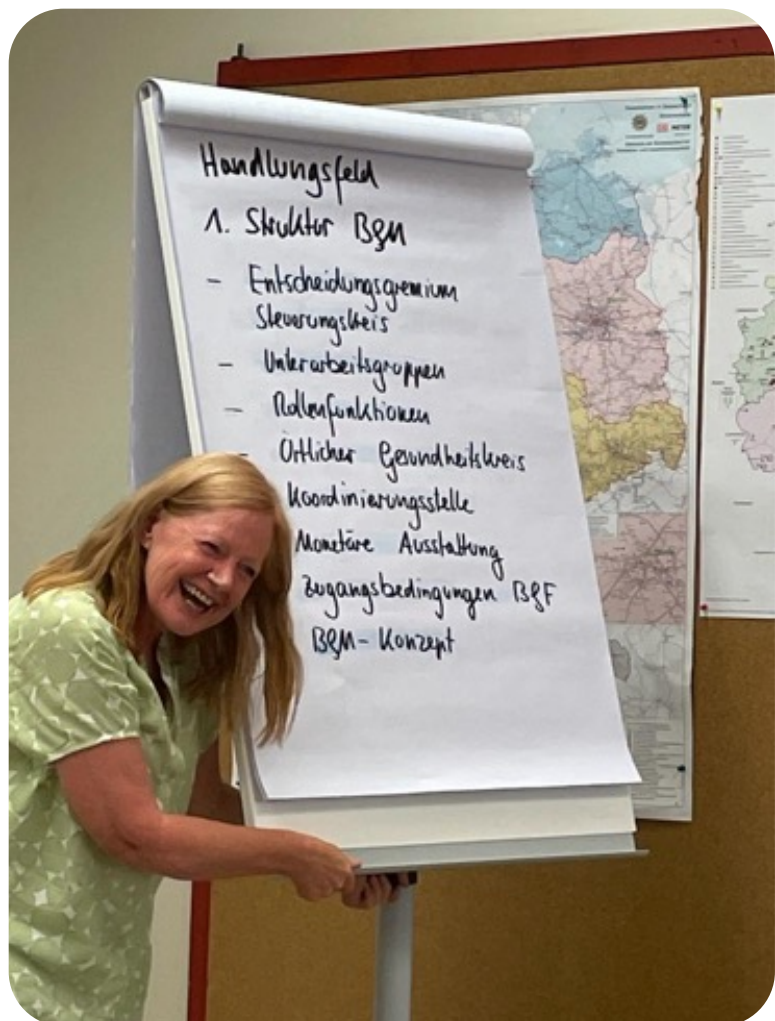 Handlungsfeld
1. Struktur BGM
- Entscheidungsgremium
Steuerungskreis
- Unterarbeitsgruppen
- Rollenfunktionen
- Örtlicher Gesundheitskreis
Koordinierungsstelle
Monetäre Ausstattung
Zugangsbedingungen BGF
BGM-Konzept